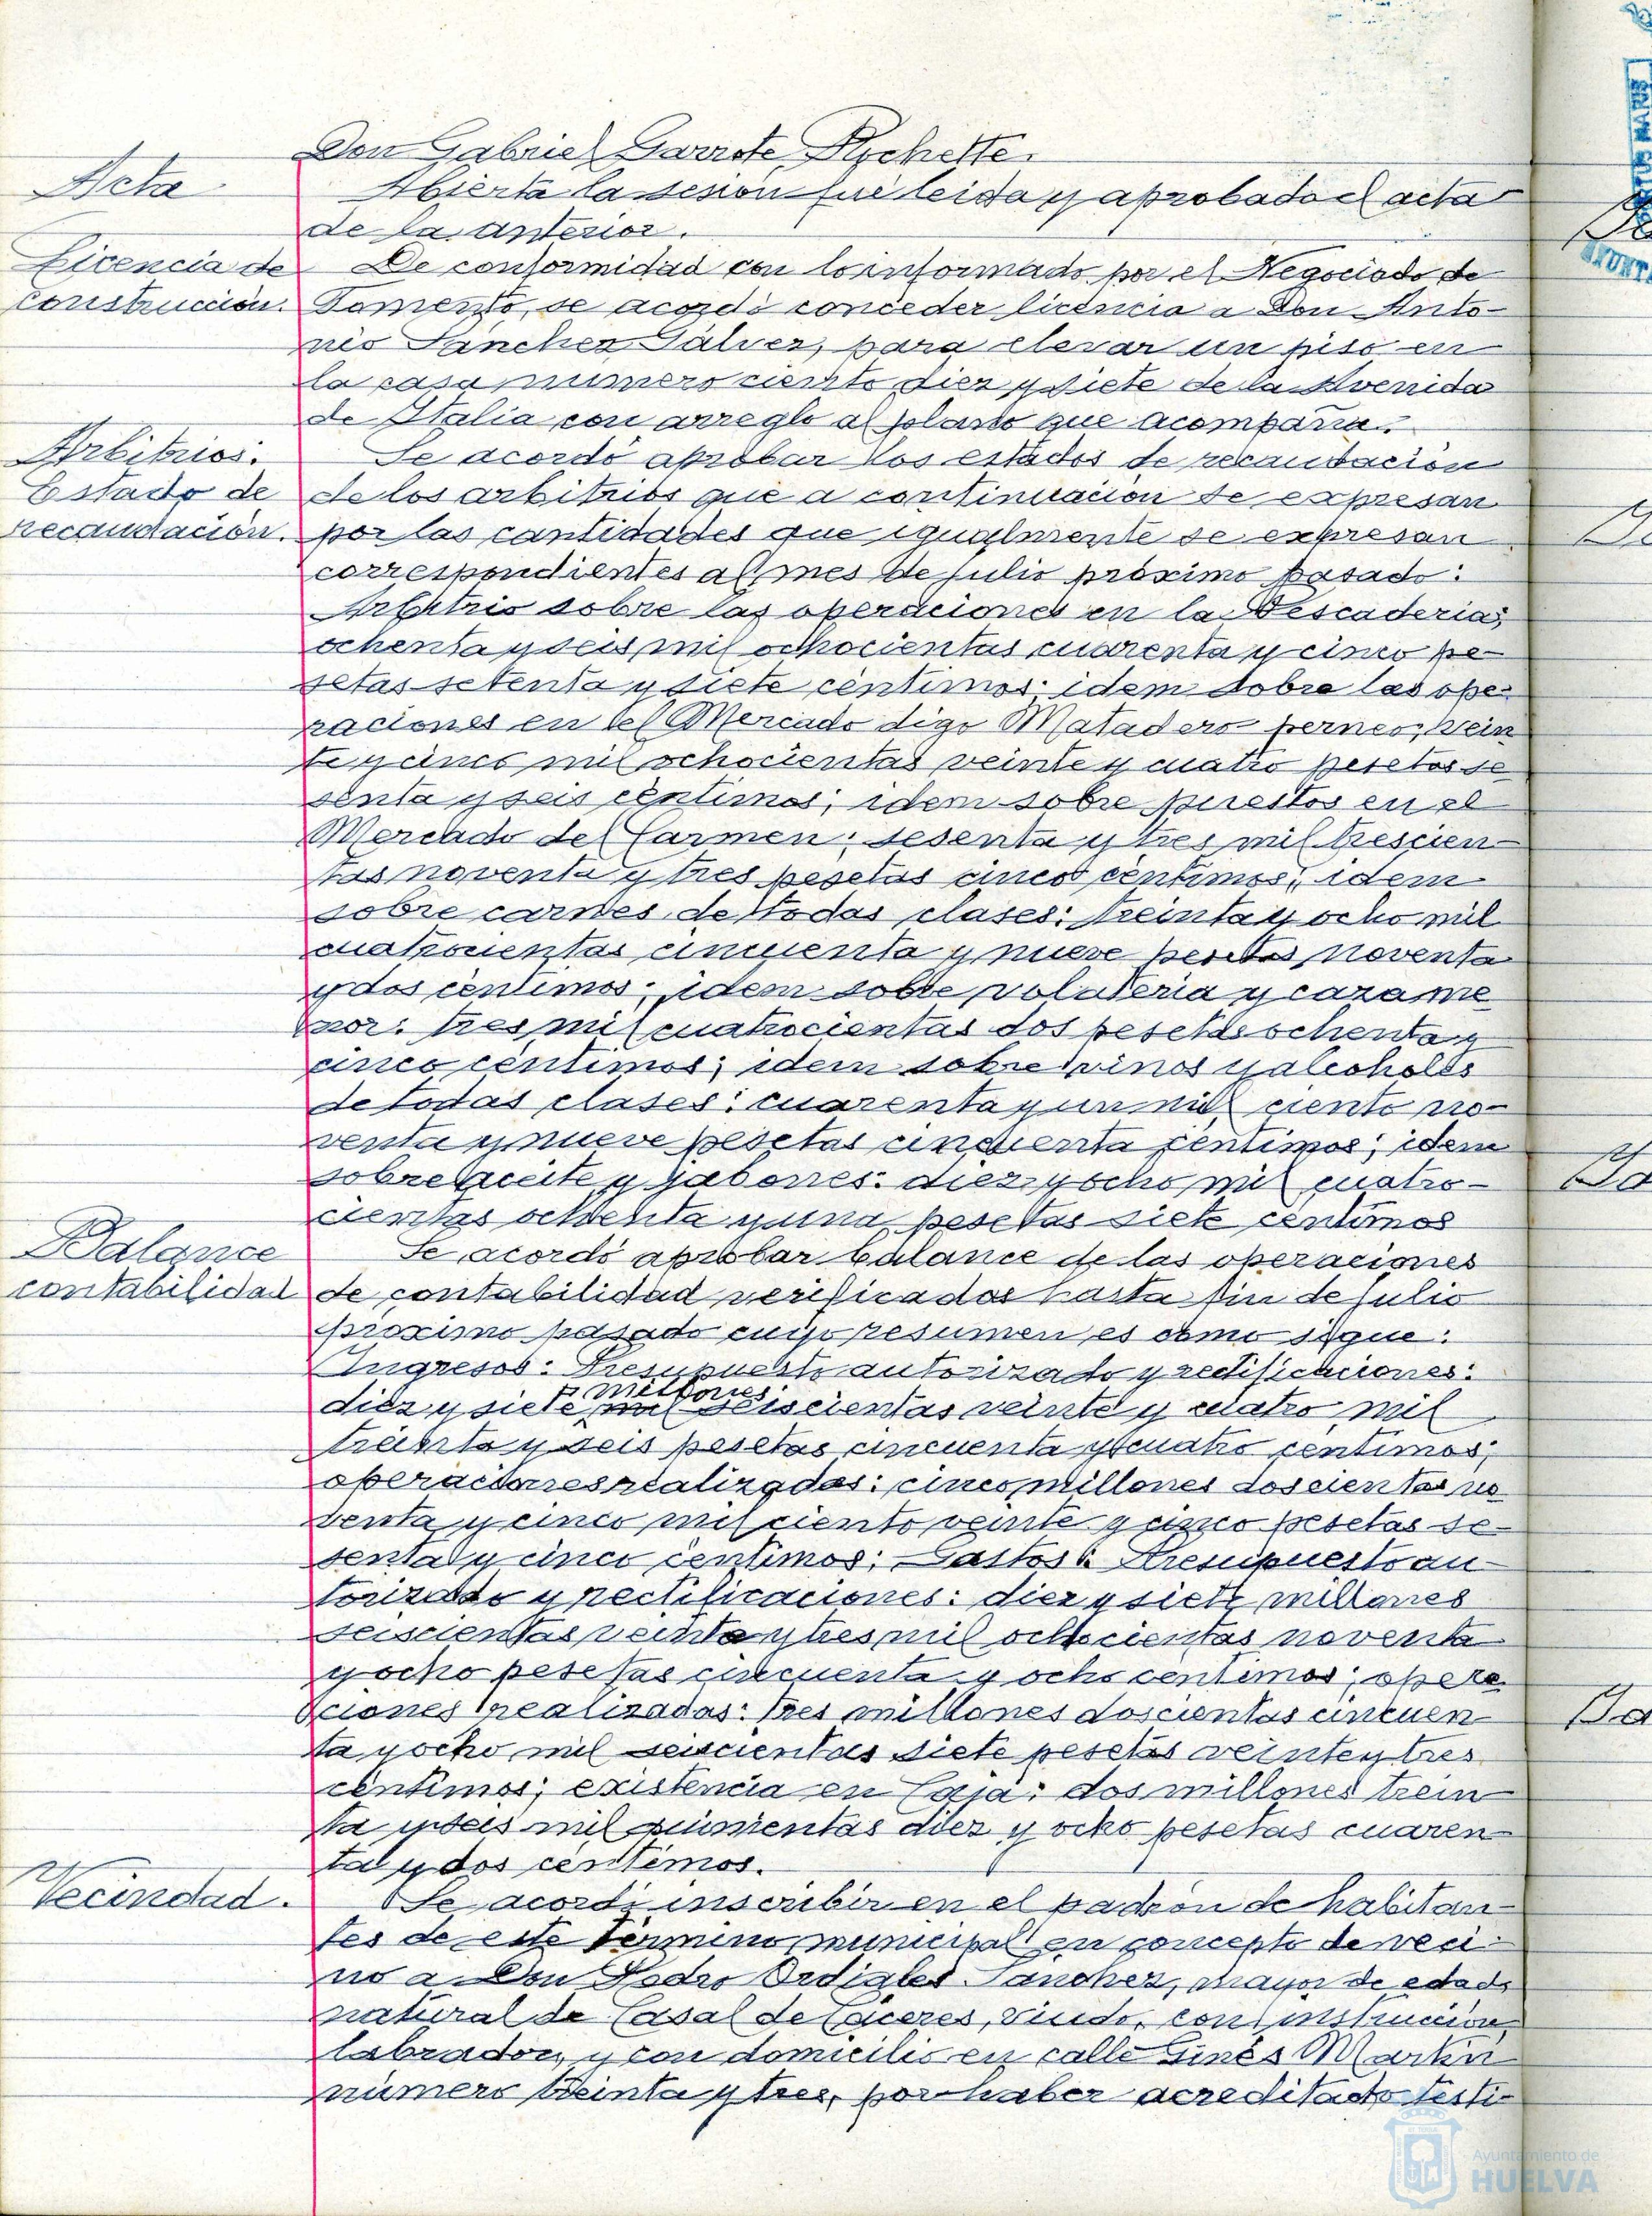 Don Gabriel Garrote Pychette.
Acta
Abierta la sesión fué leida y aprobado el acta
de la anterior.
Licencia de
construcción.
De conformidad con lo informado por el Negociado de
Fomento, se acordó conceder licencia a Don Anto-
nio Sánchez Gálvez, para elevar un piso en
la casa número ciento diez y siete de la Avenida
de Italia con arreglo al plano que acompaña.
Arbitrios.
Estado de
recaudación.
Se acordó aprobar los estados de recaudación
de los arbitrios que a continuación se expresan
por las cantidades que igualmente se expresan
correspondientes al mes de julio próximo pasado:
Arbitrio sobre las operaciones en la Pescaderia;
ochenta y seis mil ochocientas cuarenta y cinco pe-
setas setenta y siete céntimos; idem sobre las ope-
raciones en el Mercado digo Matadero perneo; vein
te y cinco mil ochocientas veinte y cuatro pesetas se
senta y seis céntimos; idem sobre puestos en el
Mercado del Carmen; sesenta y tres mil trescien-
tas noventa y tres pesetas cinco céntimos; idem
sobre carnes de todas clases: treinta y ocho mil
cuatrocientas cincuenta y nueve pesetas noventa
y dos céntimos; idem sobre volateria y caza me
nor: tres mil cuatrocientas dos pesetas ochenta y
cinco céntimos; idem sobre vinos y alcoholes
de todas clases: cuarenta y un mil ciento no-
venta y nueve pesetas cincuenta céntimos; idem
sobre aceite y jabones: diez y ocho mil cuatro-
cientas ochenta y una pesetas siete centimos
Balance
contabilidad
Se acordó aprobar balance de las operaciones
de contabilidad verificadas hasta fin de julio
proximo pasado cuyo resumen es como sigue:
Ingresos: Presupuesto autorizado y rectificaciones:
millones
diez y siete mil seiscientas veinte y cuatro mil
treinta y seis pesetas cincuenta y cuatro centimos;
operaciones realizadas: cinco millones doscientas no
venta y cinco mil ciento veinte y cinco pesetas se-
senta y cinco centimos; Gastos: Presupuesto au-
torizado y rectificaciones: diez y siete millones
seiscientas veinte y tres mil ochocientas noventa
y ocho pesetas cincuenta y ocho centimos; opera
ciones realizadas: tres millones doscientas cincuen-
ta y ocho mil seiscientas siete pesetas veinte y tres
céntimos; existencia en Caja: dos millones trein-
ta y seis mil quinientas diez y ocho pesetas cuaren-
ta y dos céntimos.
Vecindad.
Se acordó inscribir en el padrón de habitan-
tes de este término municipal en concepto de veci-
no a Don Pedro Ordiales Sánchez, mayor de edad,
natural de Casal de Cáceres, viudo, con instrucción,
labrador, y con domicilio en calle Ginés Martín
número treinta y tres, por haber acreditado testi-
Ayuntamiento de
HUELVA